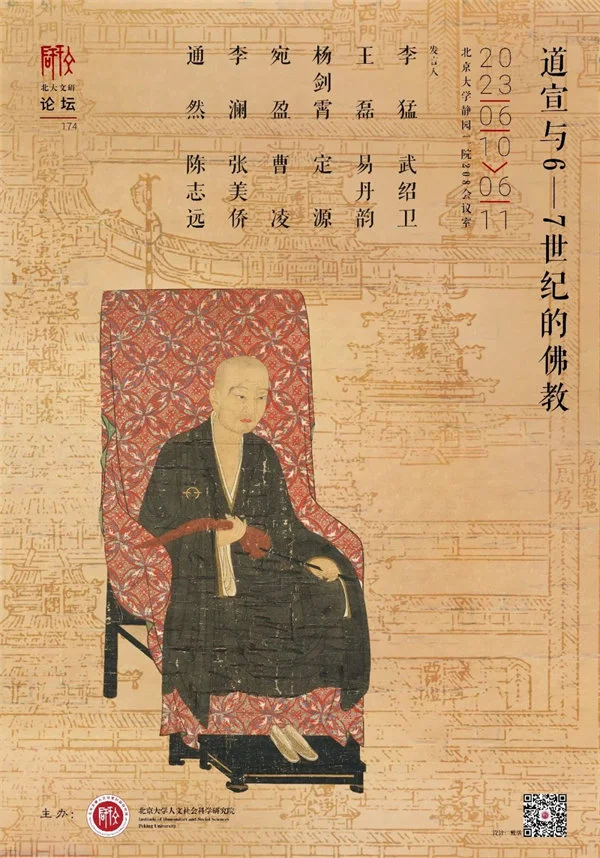 道宣与6—7世纪的佛教
20
23
06
10
06
11
北京大学静园一院208会议室
发言人
李猛 武绍卫
王磊 易丹韵
杨剑霄 定源
宛盈 曹凌
李澜 张美侨
通然 陈志远
北大文研
论坛
174
主办：
北京大学人文社会科学研究院
Institute of Humanities and Social Sciences
Peking University